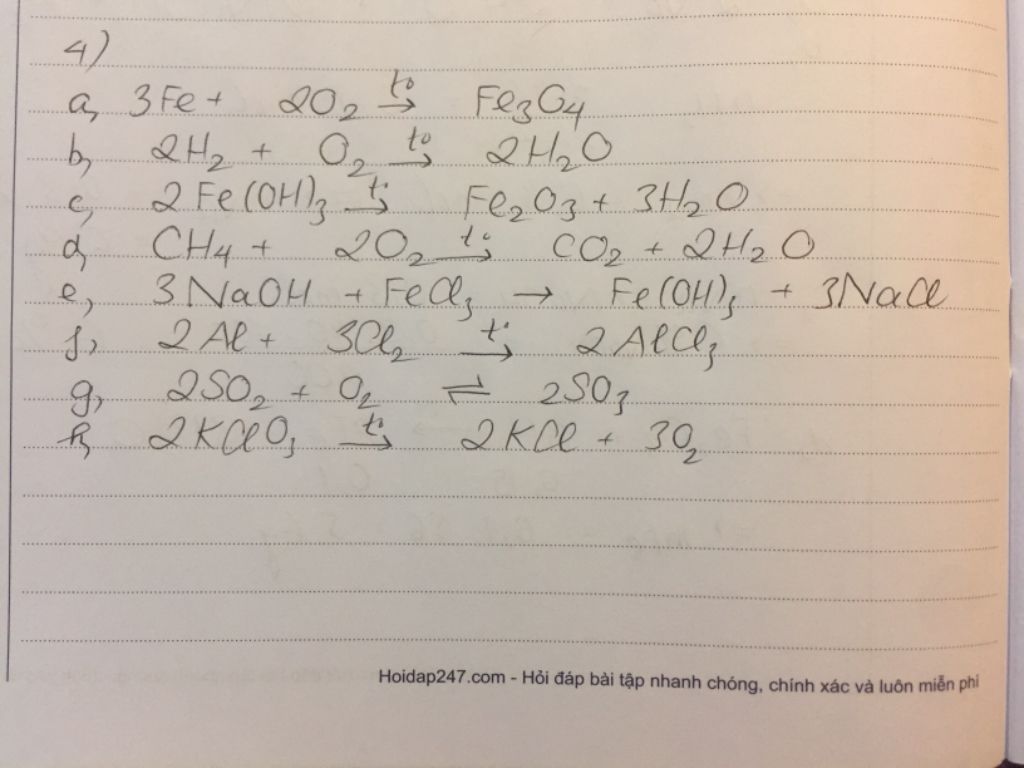 4)
a, 3Fe + 2O₂ t° → Fe₃O₄
b, 2H₂ + O₂ t° → 2H₂O
c, 2Fe(OH)₃ t° → Fe₂O₃ + 3H₂O
d, CH₄ + 2O₂ t° → CO₂ + 2H₂O
e, 3NaOH + FeCl₃ → Fe(OH)₃ + 3NaCl
f, 2Al + 3Cl₂ t° → 2AlCl₃
g, 2SO₂ + O₂ ⇌ 2SO₃
h, 2KClO₃ t° → 2KCl + 3O₂
Hoidap247.com - Hỏi đáp bài tập nhanh chóng, chính xác và luôn miễn phí